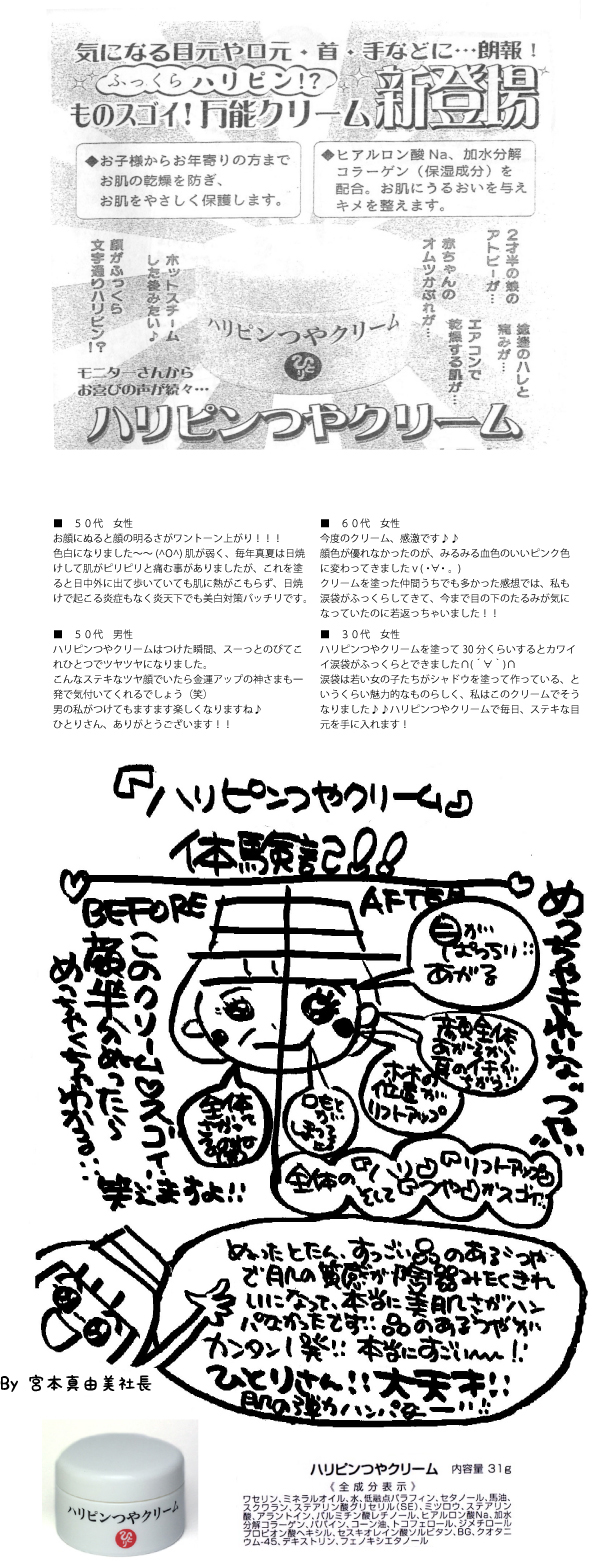 気になる目元や口元・首・手などに…朗報！
ふっくらハリピン!?
ものスゴイ！万能クリーム新登場
◆お子様からお年寄りの方まで
お肌の乾燥を防ぎ、
お肌をやさしく保護します。
◆ヒアルロン酸Na、加水分解
コラーゲン（保湿成分）を
配合。お肌にうるおいを与え
キメを整えます。
2才半の娘の
アトピーが…
赤ちゃんの
オムツかぶれが…
エアコンで
乾燥する肌が…
ホットスチーム
した後みたい♪
顔がふっくら
文字通りハリピン!?
ハリピンつやクリーム
モニターさんから
お喜びの声が続々…
ハリピンつやクリーム
■　５０代　女性
お顔にぬると顔の明るさがワントーン上がり！！！
色白になりました～～(^O^)肌が弱く、毎年真夏は日焼
けして肌がピリピリと痛む事がありましたが、これを塗
ると日中外に出て歩いていても肌に熱がこもらず、日焼
けで起こる炎症もなく炎天下でも美白対策バッチリです。
■　６０代　女性
今度のクリーム、感激です♪♪
顔色が優れなかったのが、みるみる血色のいいピンク色
に変わってきましたｖ(・∀・。)
クリームを塗った仲間うちでも多かった感想では、私も
涙袋がふっくらしてきて、今まで目の下のたるみが気に
なっていたのに若返っちゃいました！！
■　５０代　男性
ハリピンつやクリームはつけた瞬間、スーっとのびてこ
れひとつでツヤツヤになりました。
こんなステキなツヤ顔でいたら金運アップの神さまも一
発で気付いてくれるでしょう（笑）
男の私がつけてもますます楽しくなりますね♪
ひとりさん、ありがとうございます！！
■　３０代　女性
ハリピンつやクリームを塗って30分くらいするとカワイ
イ涙袋がふっくらとできました∩(´∀｀)∩
涙袋は若い女の子たちがシャドウを塗って作っている、と
いうくらい魅力的なものらしく、私はこのクリームでそう
なりました♪♪ハリピンつやクリームで毎日、ステキな目
元を手に入れます！
『ハリピンつやクリーム』
体験記!!
BEFORE
AFTER
めっちゃきれいなつや!!
このクリーム♡スゴイ!!
顔半分ぬったら
めっちゃくちゃわかる!!
笑えますよ!!
目が
ぱっちり!!
あがる
ホホの
位置が
リフトアップ
口もとが
全体の『ハリ』『リフトアップ』
そして『つや』がスゴイ!!
ぬったとたん、すっごい品のあるつや
で肌の質感が陶器みたくきれ
いになって、本当に美肌さがハン
パなかったです!!品のあるつやが
カンタン1発!!本当にすごいー!!
ひとりさん!!大天才!!
肌の弾力ハンパねー!!
By 宮本真由美社長
ハリピンつやクリーム
ハリピンつやクリーム　内容量 31g
《 全 成 分 表 示 》
ワセリン、ミネラルオイル、水、低融点パラフィン、セタノール、馬油、
スクワラン、ステアリン酸グリセリル(SE)、ミツロウ、ステアリン
酸、アラントイン、パルミチン酸レチノール、ヒアルロン酸Na、加水
分解コラーゲン、パパイン、コーン油、トコフェロール、ジメチロール
プロピオン酸ヘキシル、セスキオレイン酸ソルビタン、BG、クオタニ
ウム-45、デキストリン、フェノキシエタノール